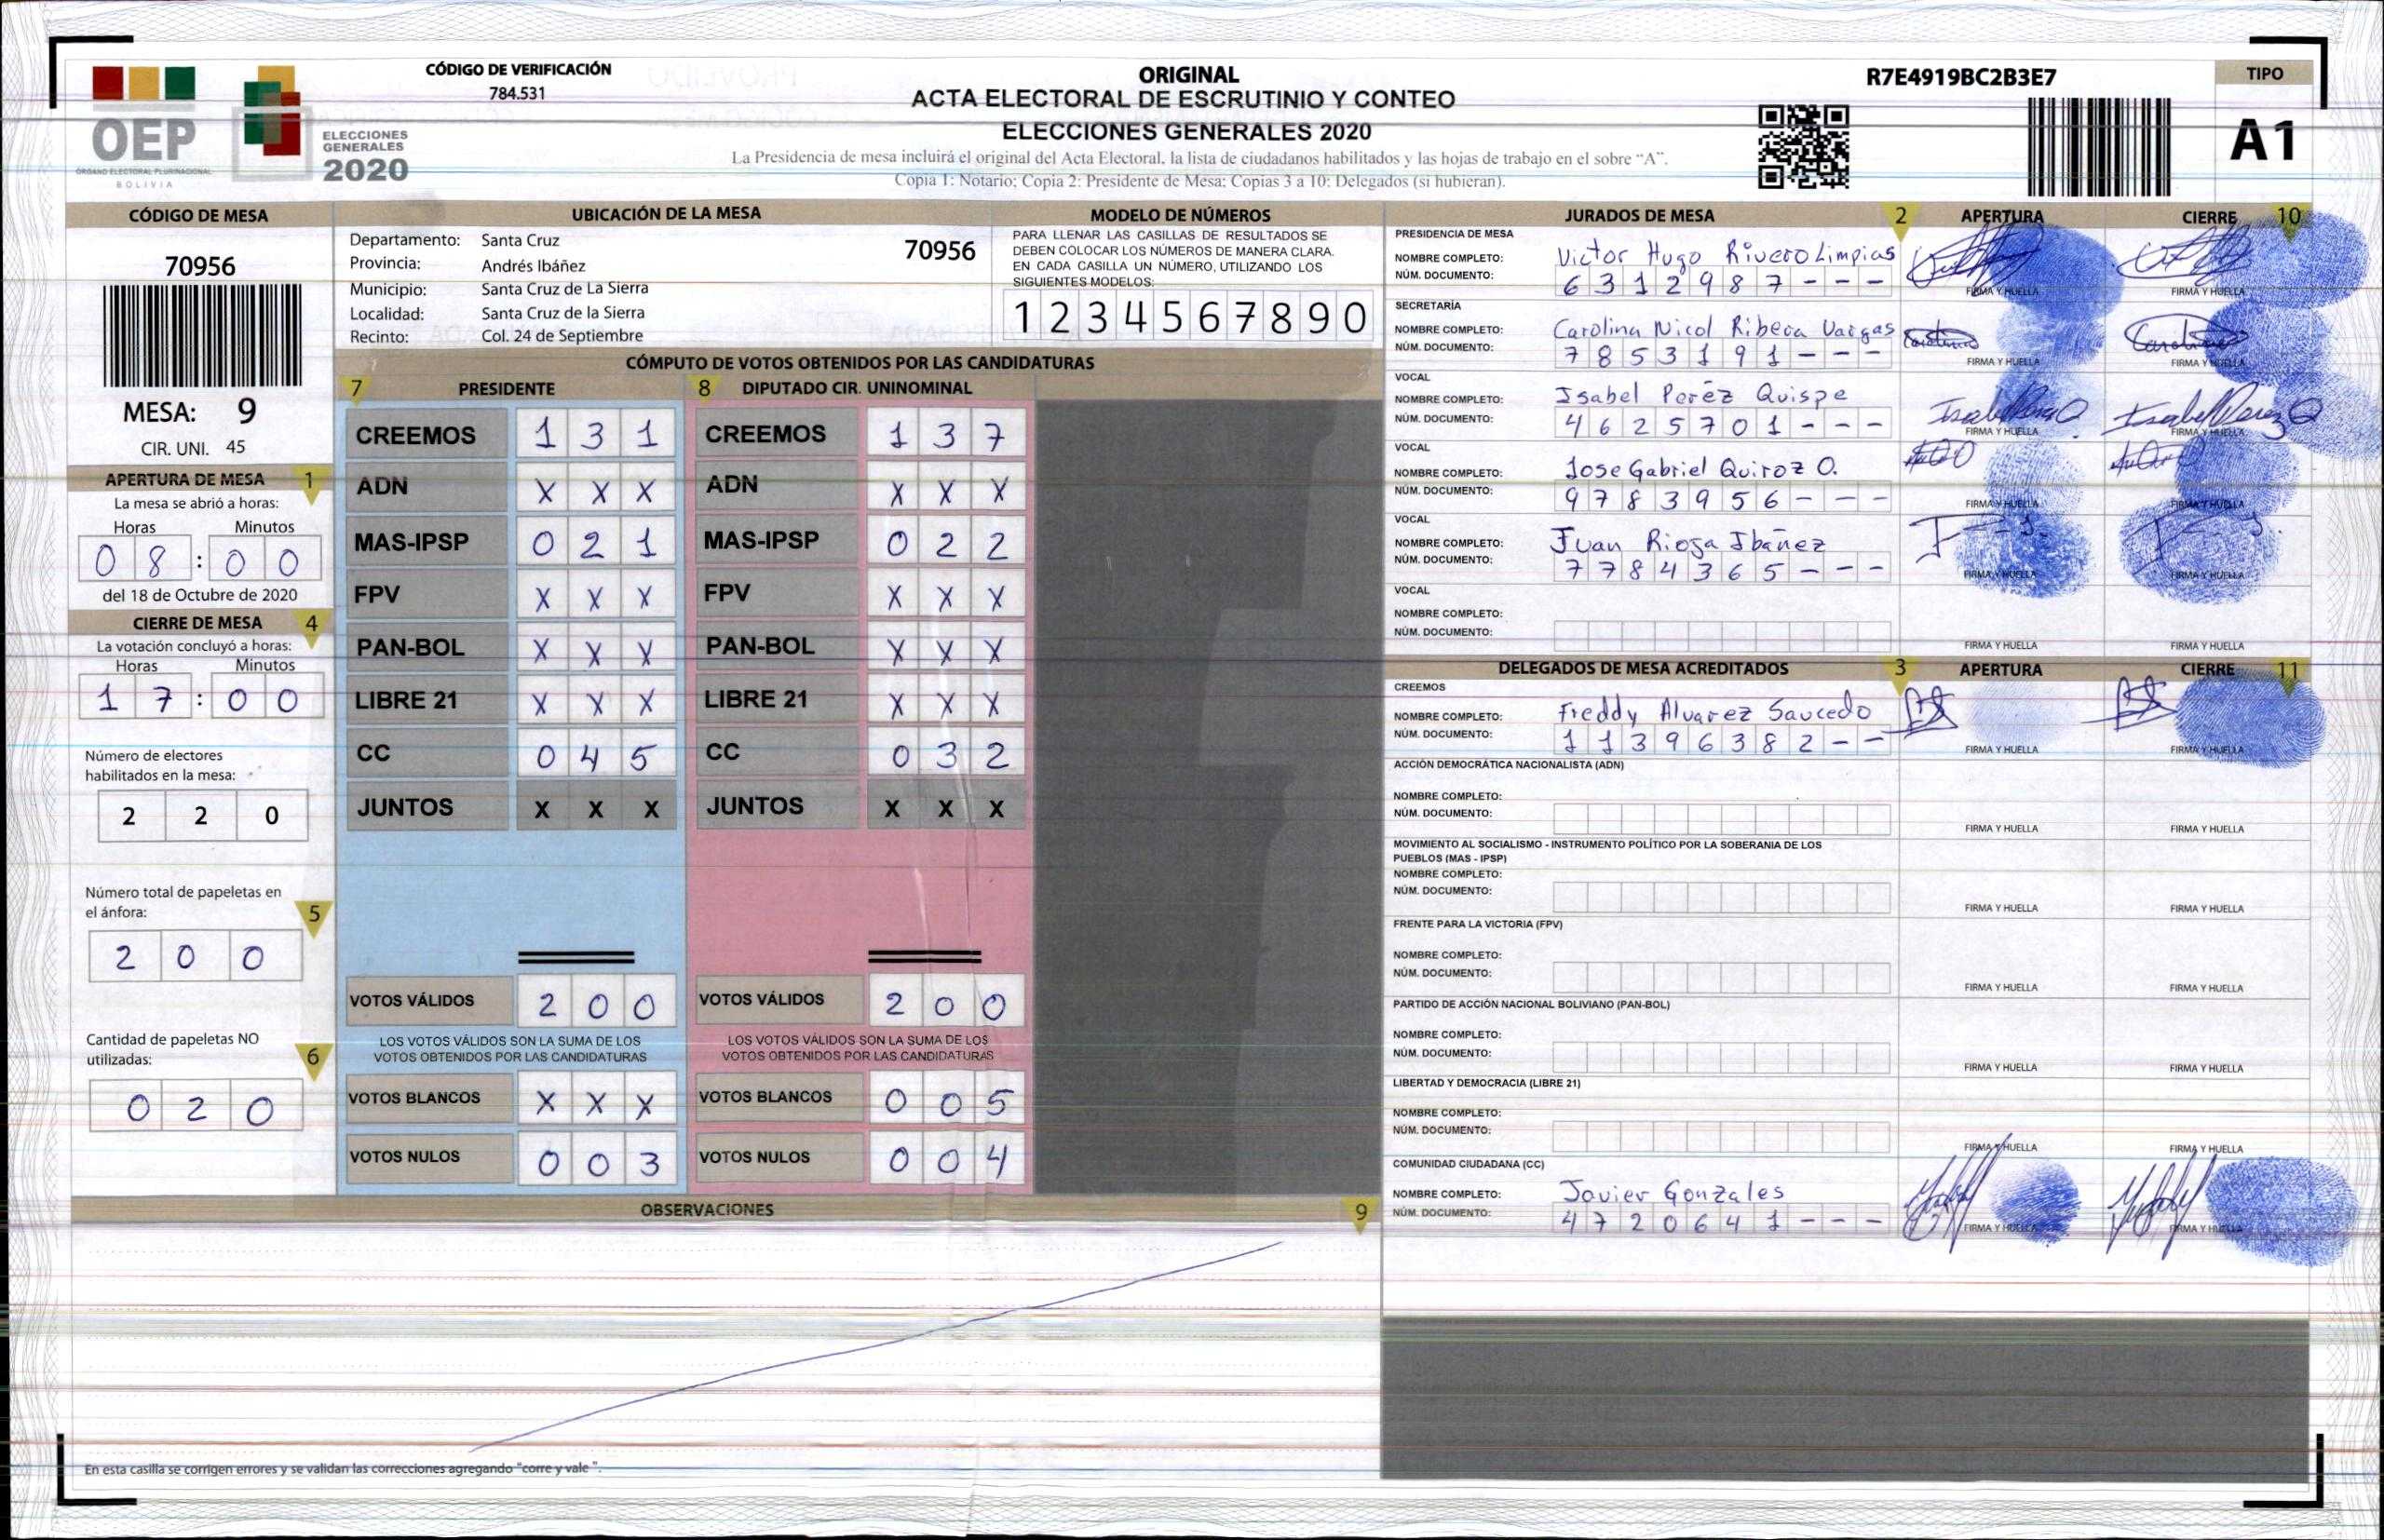 CÓDIGO DE VERIFICACIÓN
784.531
OEP
ÓRGANO ELECTORAL PLURINACIONAL
BOLIVIA
ELECCIONES
GENERALES
2020
ORIGINAL
ACTA ELECTORAL DE ESCRUTINIO Y CONTEO
ELECCIONES GENERALES 2020
La Presidencia de mesa incluirá el original del Acta Electoral, la lista de ciudadanos habilitados y las hojas de trabajo en el sobre "A".
Copia 1: Notario; Copia 2: Presidente de Mesa; Copias 3 a 10: Delegados (si hubieran).
R7E4919BC2B3E7
TIPO
A1
CÓDIGO DE MESA
70956
MESA: 9
CIR. UNI. 45
APERTURA DE MESA 1
La mesa se abrió a horas:
Horas Minutos
0 8 : 0 0
del 18 de Octubre de 2020
CIERRE DE MESA 4
La votación concluyó a horas:
Horas Minutos
1 7 : 0 0
Número de electores
habilitados en la mesa:
2 2 0
Número total de papeletas en
el ánfora: 5
2 0 0
Cantidad de papeletas NO
utilizadas: 6
0 2 0
UBICACIÓN DE LA MESA
Departamento: Santa Cruz 70956
Provincia: Andrés Ibáñez
Municipio: Santa Cruz de La Sierra
Localidad: Santa Cruz de la Sierra
Recinto: Col. 24 de Septiembre
MODELO DE NÚMEROS
PARA LLENAR LAS CASILLAS DE RESULTADOS SE
DEBEN COLOCAR LOS NÚMEROS DE MANERA CLARA.
EN CADA CASILLA UN NÚMERO, UTILIZANDO LOS
SIGUIENTES MODELOS:
1 2 3 4 5 6 7 8 9 0
CÓMPUTO DE VOTOS OBTENIDOS POR LAS CANDIDATURAS
7 PRESIDENTE 8 DIPUTADO CIR. UNINOMINAL
CREEMOS 1 3 1 CREEMOS 1 3 7
ADN X X X ADN X X X
MAS-IPSP 0 2 1 MAS-IPSP 0 2 2
FPV X X X FPV X X X
PAN-BOL X X X PAN-BOL X X X
LIBRE 21 X X X LIBRE 21 X X X
CC 0 4 5 CC 0 3 2
JUNTOS X X X JUNTOS X X X
VOTOS VÁLIDOS 2 0 0 VOTOS VÁLIDOS 2 0 0
LOS VOTOS VÁLIDOS SON LA SUMA DE LOS LOS VOTOS VÁLIDOS SON LA SUMA DE LOS
VOTOS OBTENIDOS POR LAS CANDIDATURAS VOTOS OBTENIDOS POR LAS CANDIDATURAS
VOTOS BLANCOS X X X VOTOS BLANCOS 0 0 5
VOTOS NULOS 0 0 3 VOTOS NULOS 0 0 4
OBSERVACIONES 9
En esta casilla se corrigen errores y se validan las correcciones agregando "corre y vale".
JURADOS DE MESA 2 APERTURA CIERRE 10
PRESIDENCIA DE MESA
NOMBRE COMPLETO: Victor Hugo Rivero Limpias
NÚM. DOCUMENTO: 6 3 1 2 9 8 7 - - -
FIRMA Y HUELLA FIRMA Y HUELLA
SECRETARÍA
NOMBRE COMPLETO: Carolina Nicol Ribera Vargas
NÚM. DOCUMENTO: 7 8 5 3 1 9 1 - - -
FIRMA Y HUELLA FIRMA Y HUELLA
VOCAL
NOMBRE COMPLETO: Isabel Peréz Quispe
NÚM. DOCUMENTO: 4 6 2 5 7 0 1 - - -
FIRMA Y HUELLA FIRMA Y HUELLA
VOCAL
NOMBRE COMPLETO: Jose Gabriel Quiroz O.
NÚM. DOCUMENTO: 9 7 8 3 9 5 6 - - -
FIRMA Y HUELLA FIRMA Y HUELLA
VOCAL
NOMBRE COMPLETO: Juan Rioja Ibañez
NÚM. DOCUMENTO: 7 7 8 4 3 6 5 - - -
FIRMA Y HUELLA FIRMA Y HUELLA
VOCAL
NOMBRE COMPLETO:
NÚM. DOCUMENTO:
FIRMA Y HUELLA FIRMA Y HUELLA
DELEGADOS DE MESA ACREDITADOS 3 APERTURA CIERRE 11
CREEMOS
NOMBRE COMPLETO: Freddy Alvarez Saucedo
NÚM. DOCUMENTO: 1 1 3 9 6 3 8 2 - -
FIRMA Y HUELLA FIRMA Y HUELLA
ACCIÓN DEMOCRÁTICA NACIONALISTA (ADN)
NOMBRE COMPLETO:
NÚM. DOCUMENTO:
FIRMA Y HUELLA FIRMA Y HUELLA
MOVIMIENTO AL SOCIALISMO - INSTRUMENTO POLÍTICO POR LA SOBERANIA DE LOS
PUEBLOS (MAS - IPSP)
NOMBRE COMPLETO:
NÚM. DOCUMENTO:
FIRMA Y HUELLA FIRMA Y HUELLA
FRENTE PARA LA VICTORIA (FPV)
NOMBRE COMPLETO:
NÚM. DOCUMENTO:
FIRMA Y HUELLA FIRMA Y HUELLA
PARTIDO DE ACCIÓN NACIONAL BOLIVIANO (PAN-BOL)
NOMBRE COMPLETO:
NÚM. DOCUMENTO:
FIRMA Y HUELLA FIRMA Y HUELLA
LIBERTAD Y DEMOCRACIA (LIBRE 21)
NOMBRE COMPLETO:
NÚM. DOCUMENTO:
FIRMA Y HUELLA FIRMA Y HUELLA
COMUNIDAD CIUDADANA (CC)
NOMBRE COMPLETO: Javier Gonzales
NÚM. DOCUMENTO: 4 7 2 0 6 4 1 - - -
FIRMA Y HUELLA FIRMA Y HUELLA